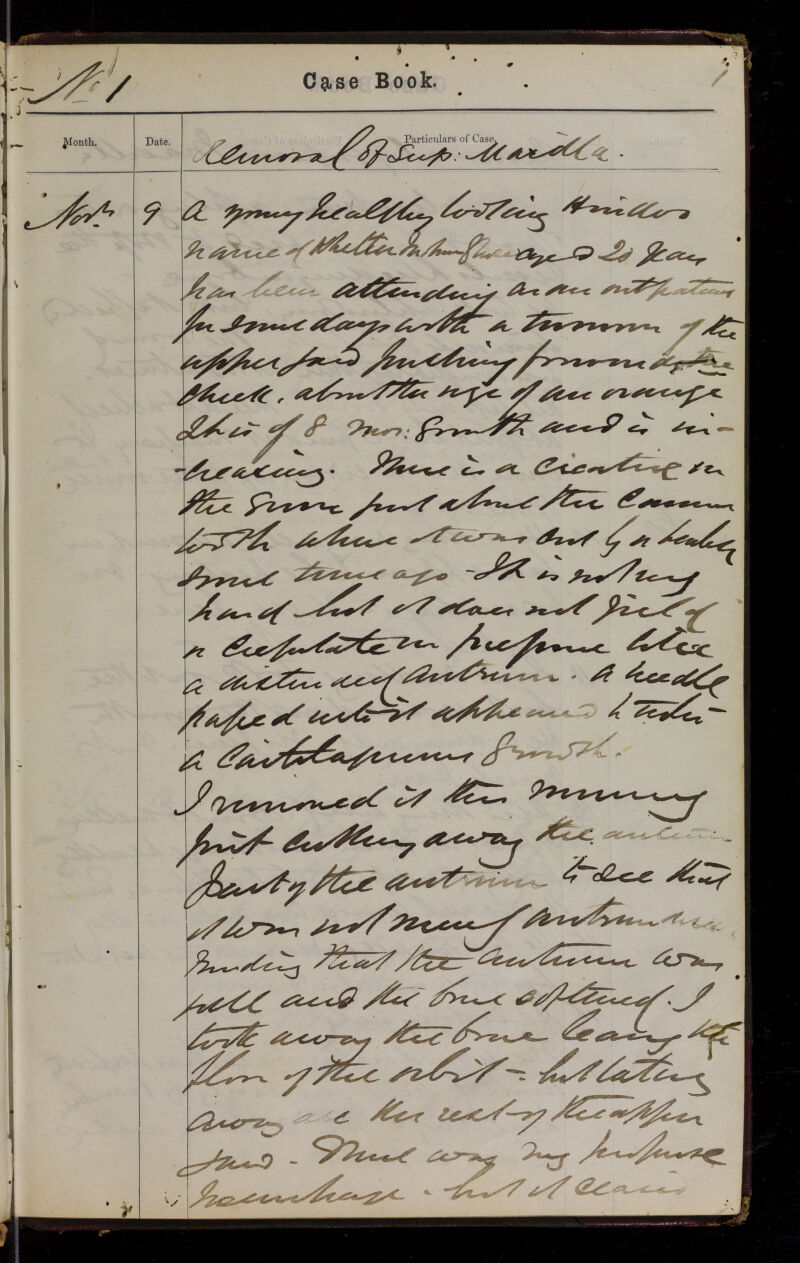 No 1
Case Book.
1
Month.
Date.
Particulars of Case.
Removal of Sup: Maxilla.
Novr 9 A young healthy looking Hindoo
name of aged 20 years
has been attending as an out patient
for some days with a tumour of the
upper jaw pushing forward the
cheek, about the size of an orange
It is of 8 mos: growth and is in-
-creasing. There is a cicatrice in
the gum just above the canine
tooth where it was cut by a
some time ago - It is not very
hard but it does not yield
or crepitate on pressure like
a distended antrum. A needle
passed into it appeared to enter
a cartilaginous growth.
I removed it this morning
first cutting away the anterior
part of the antrum to see that
it was not merely antrum disease
Finding that the antrum was
full and the bone softened. I
took away the bone leaving the
floor of the orbit - but taking
away all the rest of the upper
jaw - There was very profuse
hemorrhage - but it ceased